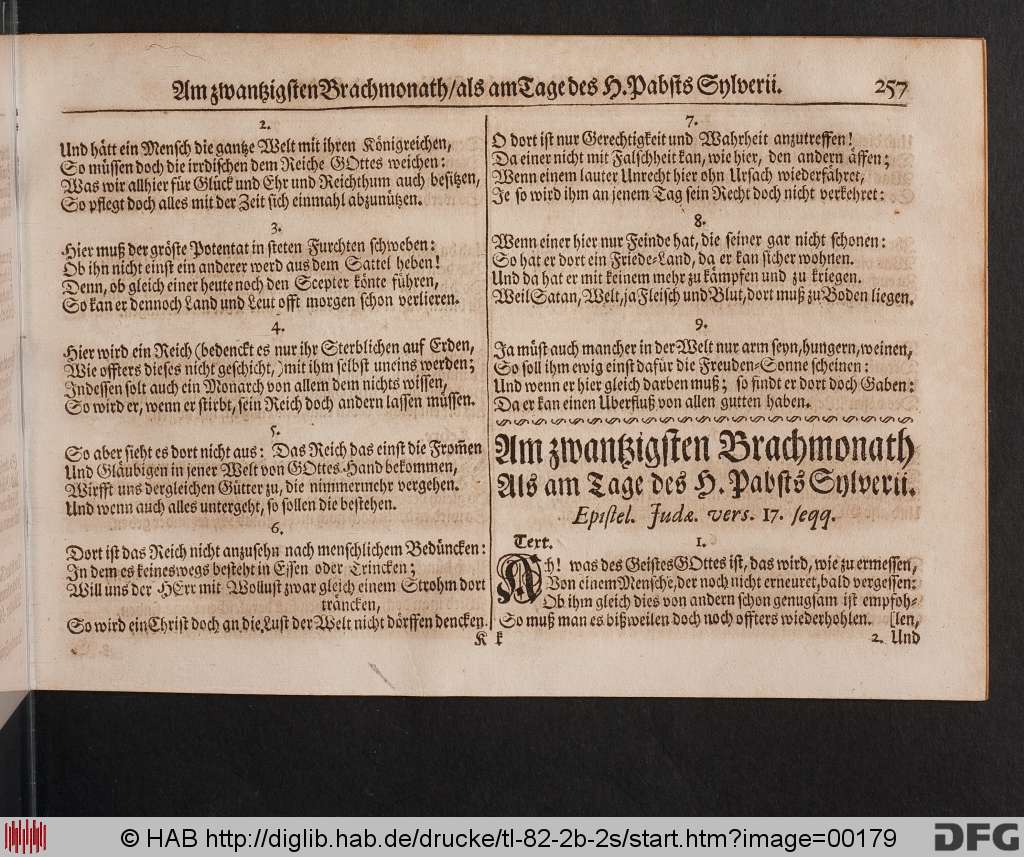 Am zwantzigsten Brachmonath/als am Tage des H. Pabsts Sylverii. 257
2.
Und hätt ein Mensch die gantze Welt mit ihren Königreichen,
So müssen doch die irrdischen dem Reiche GOttes weichen:
Was wir allhier für Glück und Ehr und Reichthum auch besitzen,
So pflegt doch alles mit der Zeit sich einmahl abzunützen.
3.
Hier muß der gröste Potentat in steten Furchten schweben:
Ob ihn nicht einst ein anderer werd aus dem Sattel heben!
Denn, ob gleich einer heute noch den Scepter könte führen,
So kan er dennoch Land und Leut offt morgen schon verlieren.
4.
Hier wird ein Reich (bedenckt es nur ihr Sterblichen auf Erden,
Wie offters dieses nicht geschicht,) mit ihm selbst uneins werden;
Indessen solt auch ein Monarch von allem dem nichts wissen,
So wird er, wenn er stirbt, sein Reich doch andern lassen müssen.
5.
So aber sieht es dort nicht aus: Das Reich das einst die From̃en
Und Gläubigen in jener Welt von GOttes-Hand bekommen,
Wirfft uns dergleichen Gütter zu, die nimmermehr vergehen.
Und wenn auch alles untergeht, so sollen die bestehen.
6.
Dort ist das Reich nicht anzusehn nach menschlichem Bedüncken:
In dem es keineswegs besteht in Essen oder Trincken;
Will uns der HErr mit Wollust zwar gleich einem Strohm dort
träncken,
So wird ein Christ doch an die Lust der Welt nicht dörffen dencken.
K k
7.
O dort ist nur Gerechtigkeit und Wahrheit anzutreffen!
Da einer nicht mit Falschheit kan, wie hier, den andern äffen;
Wenn einem lauter Unrecht hier ohn Ursach wiederfähret,
Je so wird ihm an jenem Tag sein Recht doch nicht verkehret:
8.
Wenn einer hier nur Feinde hat, die seiner gar nicht schonen:
So hat er dort ein Friede-Land, da er kan sicher wohnen.
Und da hat er mit keinem mehr zu kämpfen und zu kriegen.
Weil Satan, Welt, ja Fleisch und Blut, dort muß zu Boden liegen.
9.
Ja müst auch mancher in der Welt nur arm seyn, hungern, weinen,
So soll ihm ewig einst dafür die Freuden-Sonne scheinen:
Und wenn er hier gleich darben muß; so findt er dort doch Gaben:
Da er kan einen Uberfluß von allen gutten haben.
Am zwantzigsten Brachmonath
Als am Tage des H. Pabsts Sylverii.
Epistel. Judæ. vers. 17. seqq.
Text. 1.
Ach! was des Geistes GOttes ist, das wird, wie zu ermessen,
Von einem Mensche, der noch nicht erneuret, bald vergessen:
Ob ihm gleich dies von andern schon genugsam ist empfoh-
So muß man es bißweilen doch noch offters wiederhohlen. [len,
2. Und
© HAB http://diglib.hab.de/drucke/tl-82-2b-2s/start.htm?image=00179
DFG